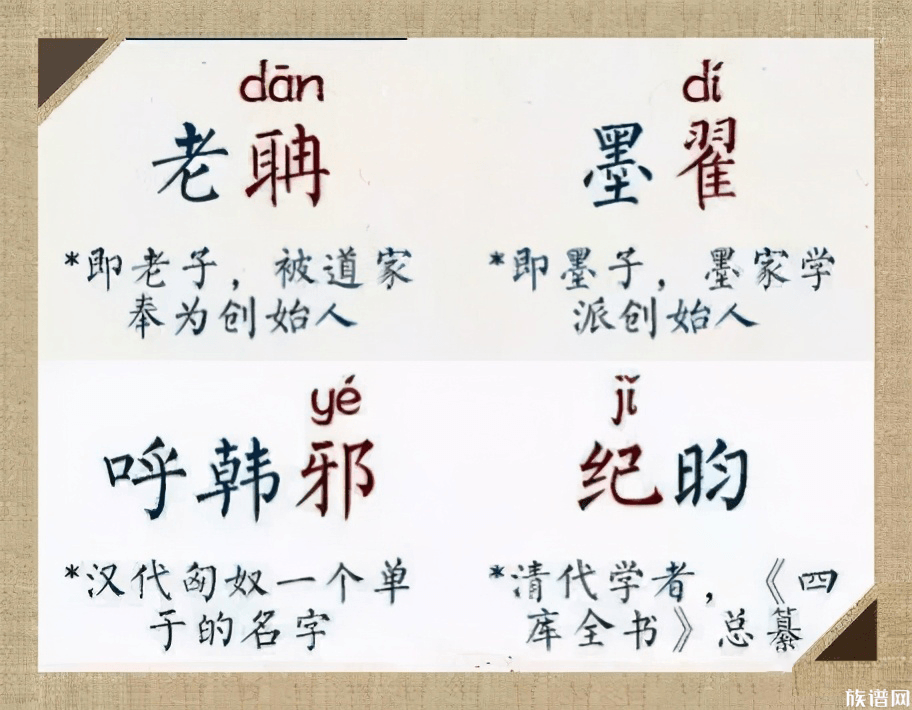 dān
老聃
*即老子，被道家
奉为创始人
dí
墨翟
*即墨子，墨家学
派创始人
yé
呼韩邪
*汉代匈奴一个单
于的名字
jǐ
纪昀
*清代学者，《四
库全书》总纂
族谱网